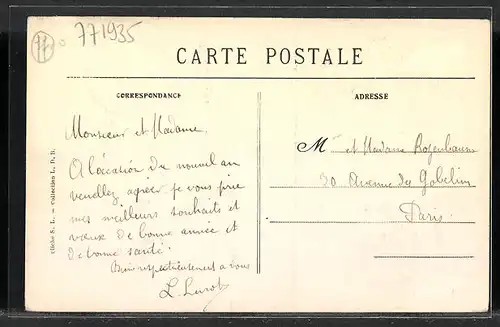 77
771935
CARTE POSTALE
CORRESPONDANCE
ADRESSE
Monsieur et Madame,
A l'occasion du nouvel an
veuillez agréer je vous prie
mes meilleurs souhaits et
vœux de bonne année et
de bonne santé.
Bien respectueusement à vous
L.
M et Madame Rozenbaum
30 Avenue des Gobelins
Paris
Cliché S. L. — Collection L. D. B.